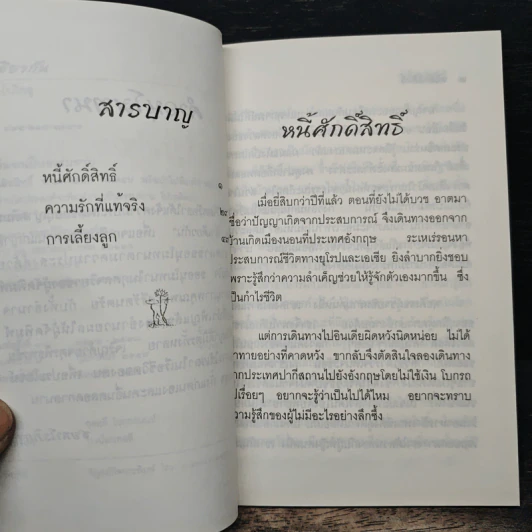 สารบาญ
หนี้ศักดิ์สิทธิ์ ๑
ความรักที่แท้จริง
การเลี้ยงลูก
หนี้ศักดิ์สิทธิ์
เมื่อยี่สิบกว่าปีที่แล้ว ตอนที่ยังไม่ได้บวช อาตมา
ชื่อว่าปัญญาเกิดจากประสบการณ์ จึงเดินทางออกจาก
บ้านเกิดเมืองนอนที่ประเทศอังกฤษ ระเหเร่รอนหา
ประสบการณ์ชีวิตทางยุโรปและเอเซีย ยิ่งลำบากยิ่งชอบ
เพราะรู้สึกว่าความลำเค็ญช่วยให้รู้จักตัวเองมากขึ้น ซึ่ง
เป็นกำไรชีวิต
แต่การเดินทางไปอินเดียผิดหวังนิดหน่อย ไม่ได้
าทายอย่างที่คาดหวัง ขากลับจึงตัดสินใจลองเดินทาง
ากประเทศปากีสถานไปยังอังกฤษโดยไม่ใช้เงิน โบกรถ
ปเรื่อยๆ อยากจะรู้ว่าเป็นไปได้ไหม อยากจะทราบ
วามรู้สึกของผู้ไม่มีอะไรอย่างลึกซึ้ง